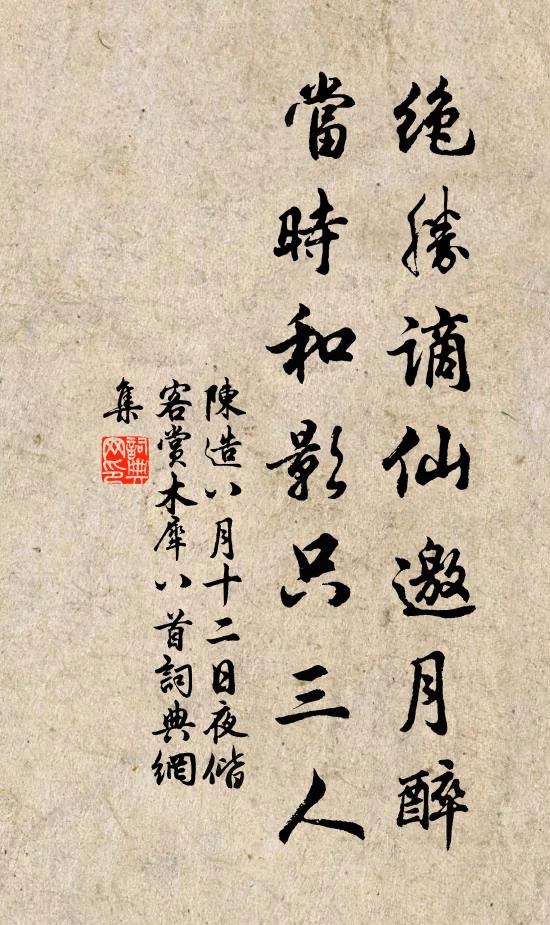 絶勝謫仙邀月醉
當時和影只三人
陳造八月十二日夜偕
客賞木犀八首詞典網
集
詞典
网印